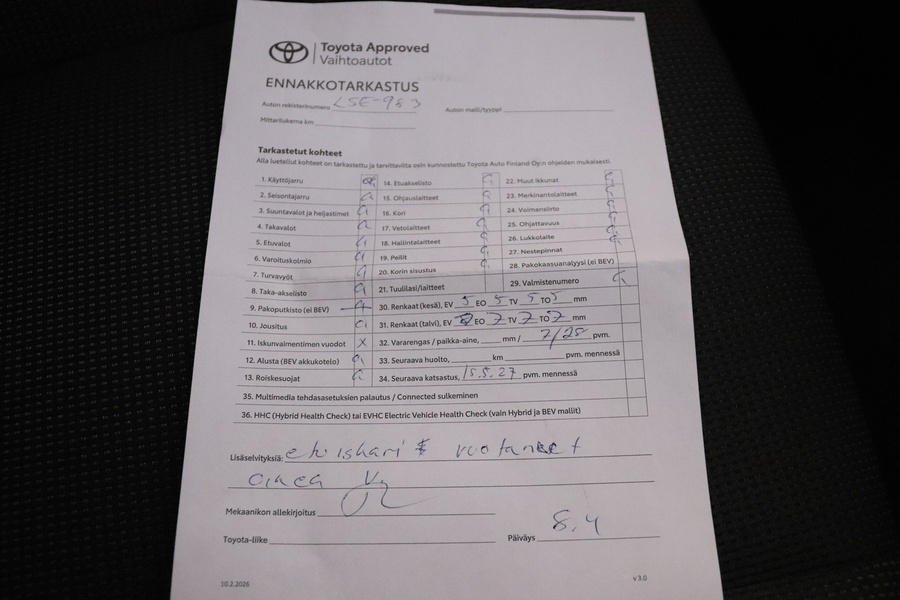 Toyota Approved
Vaihtoautot
ENNAKKOTARKASTUS
Auton rekisterinumero LSE-983 Auton malli/tyyppi
Mittarilukema km
Tarkastetut kohteet
Alla luetellut kohteet on tarkastettu ja tarvittavilta osin kunnostettu Toyota Auto Finland Oy:n ohjeiden mukaisesti.
1. Käyttöjarru 14. Etuakselisto 22. Muut ikkunat
2. Seisontajarru 15. Ohjauslaitteet 23. Merkinantolaitteet
3. Suuntavalot ja heijastimet 16. Kori 24. Voimansiirto
4. Takavalot 17. Vetolaitteet 25. Ohjattavuus
5. Etuvalot 18. Hallintalaitteet 26. Lukkolaite
6. Varoituskolmio 19. Peilit 27. Nestepinnat
7. Turvavyöt 20. Korin sisustus 28. Pakokaasuanalyysi (ei BEV)
8. Taka-akselisto 21. Tuulilasi/laitteet 29. Valmistenumero
9. Pakoputkisto (ei BEV) 30. Renkaat (kesä), EV 5 EO 5 TV 5 TO 5 mm
10. Jousitus 31. Renkaat (talvi), EV 7 EO 7 TV 7 TO 7 mm
11. Iskunvaimentimen vuodot X 32. Vararengas / paikka-aine, mm / 7/28 pvm.
12. Alusta (BEV akkukotelo) 33. Seuraava huolto, km pvm. mennessä
13. Roiskesuojat 34. Seuraava katsastus, 15.5.27 pvm. mennessä
35. Multimedia tehdasasetuksien palautus / Connected sulkeminen
36. HHC (Hybrid Health Check) tai EVHC Electric Vehicle Health Check (vain Hybrid ja BEV mallit)
Lisäselvityksiä: etu iskari vuotaneet
Mekaanikon allekirjoitus
Toyota-liike Päiväys 8.4
10.2.2026 v 3.0